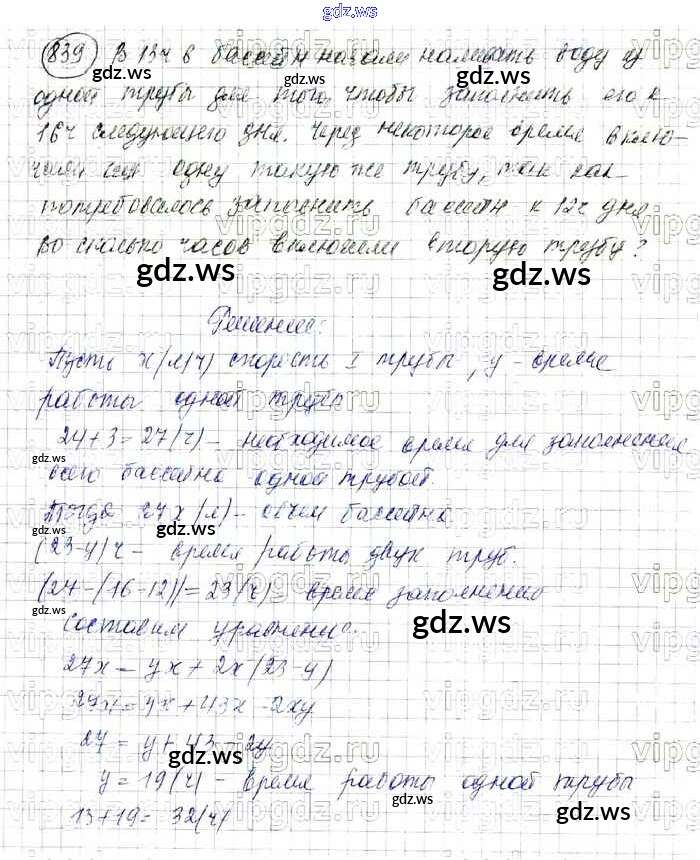 gdz.ws
839 В 13ч в бассейн начали наливать воду из
одной трубы для того, чтобы заполнить его к
16ч следующего дня. Через некоторое время вклю-
чили еще одну такую же трубу, так как
потребовалось заполнить бассейн к 12ч дня
Во сколько часов включили вторую трубу?
Решение:
Пусть x(л/ч) скорость I трубы, y - время
работы одной трубы
24+3=27(ч) - необходимое время для заполнения
всего бассейна одной трубой.
Тогда 27x(л) - объем бассейна
(23-y)ч - время работы двух труб.
(27-(16-12))=23(ч) время заполнения
Составим уравнение.
27x = yx + 2x(23-y)
27x = yx + 43x - 2xy
27 = y + 43 - 2y
y = 19(ч) - время работы одной трубы
13+19= 32(ч)
gdz.ws
vipgdz.ru